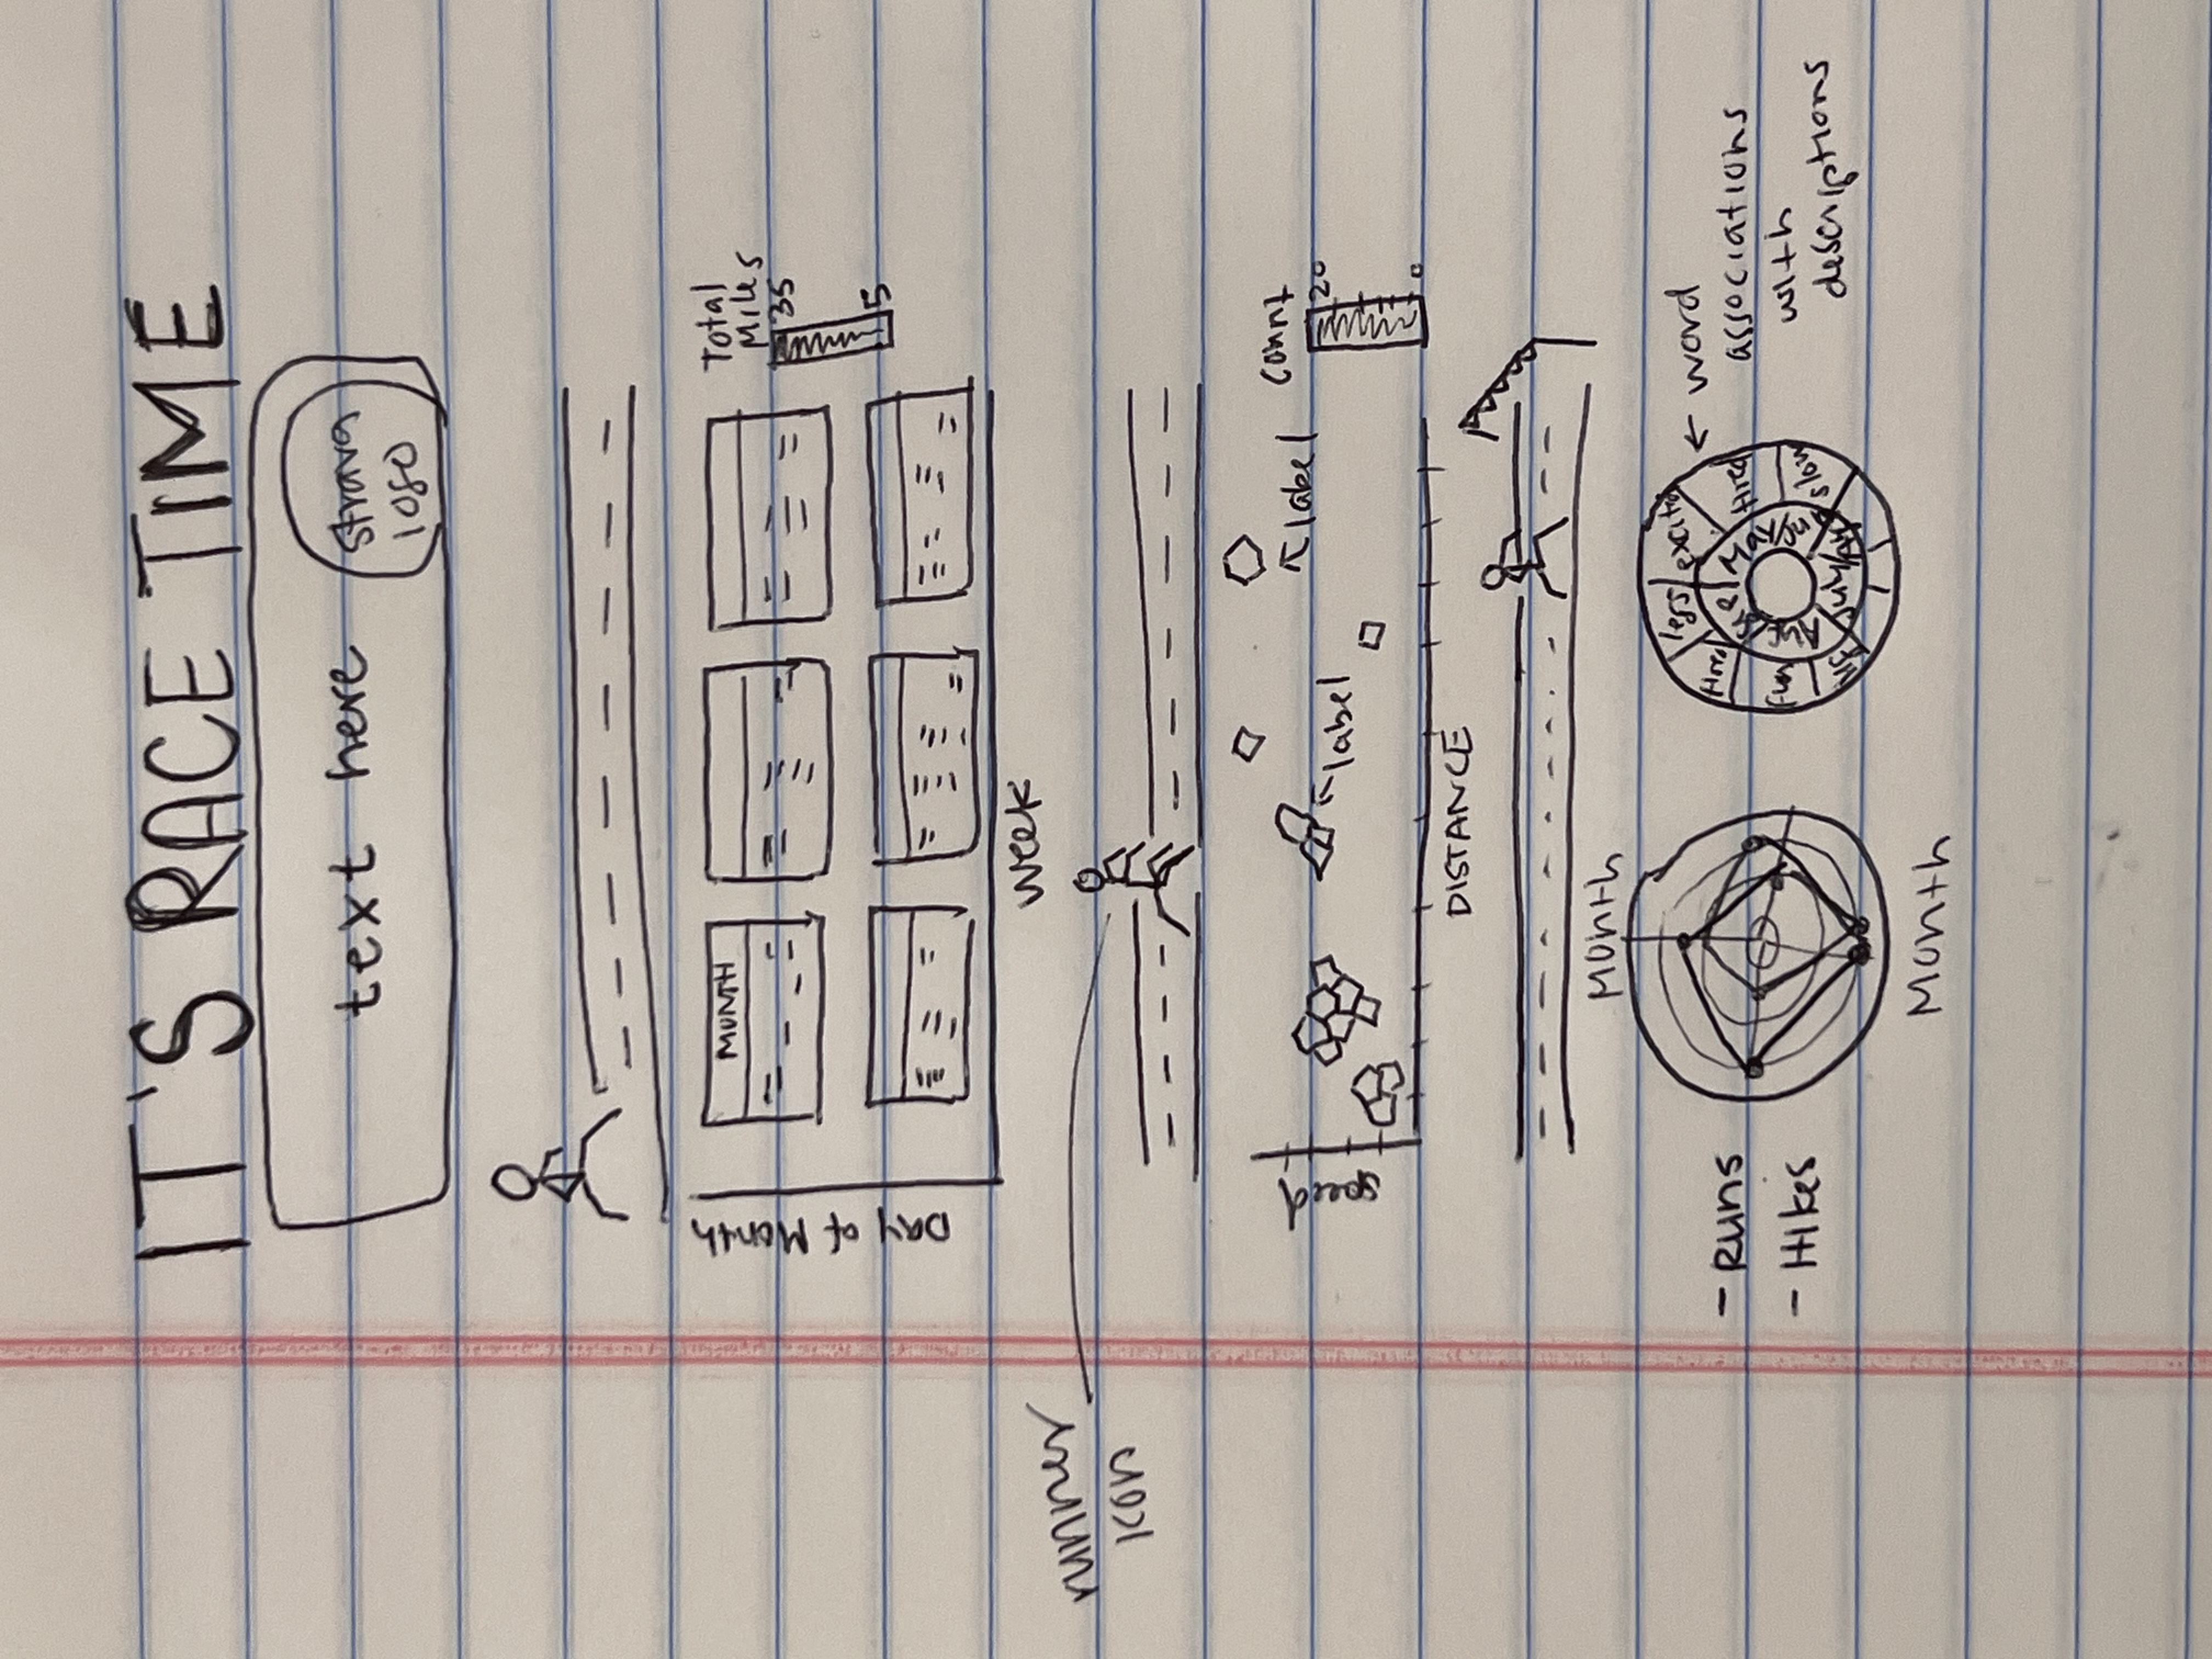 IT'S RACE TIME
text here
strava
logo
Day of Month
MONTH
Total
Miles
35
5
week
runner
icon
speed
label
label
count
20
0
DISTANCE
Month
- RUNS
- Hikes
Month
less
excited
tired
tired
fun
slow
Sep
May
Aug
July
← word
associations
with
descriptions